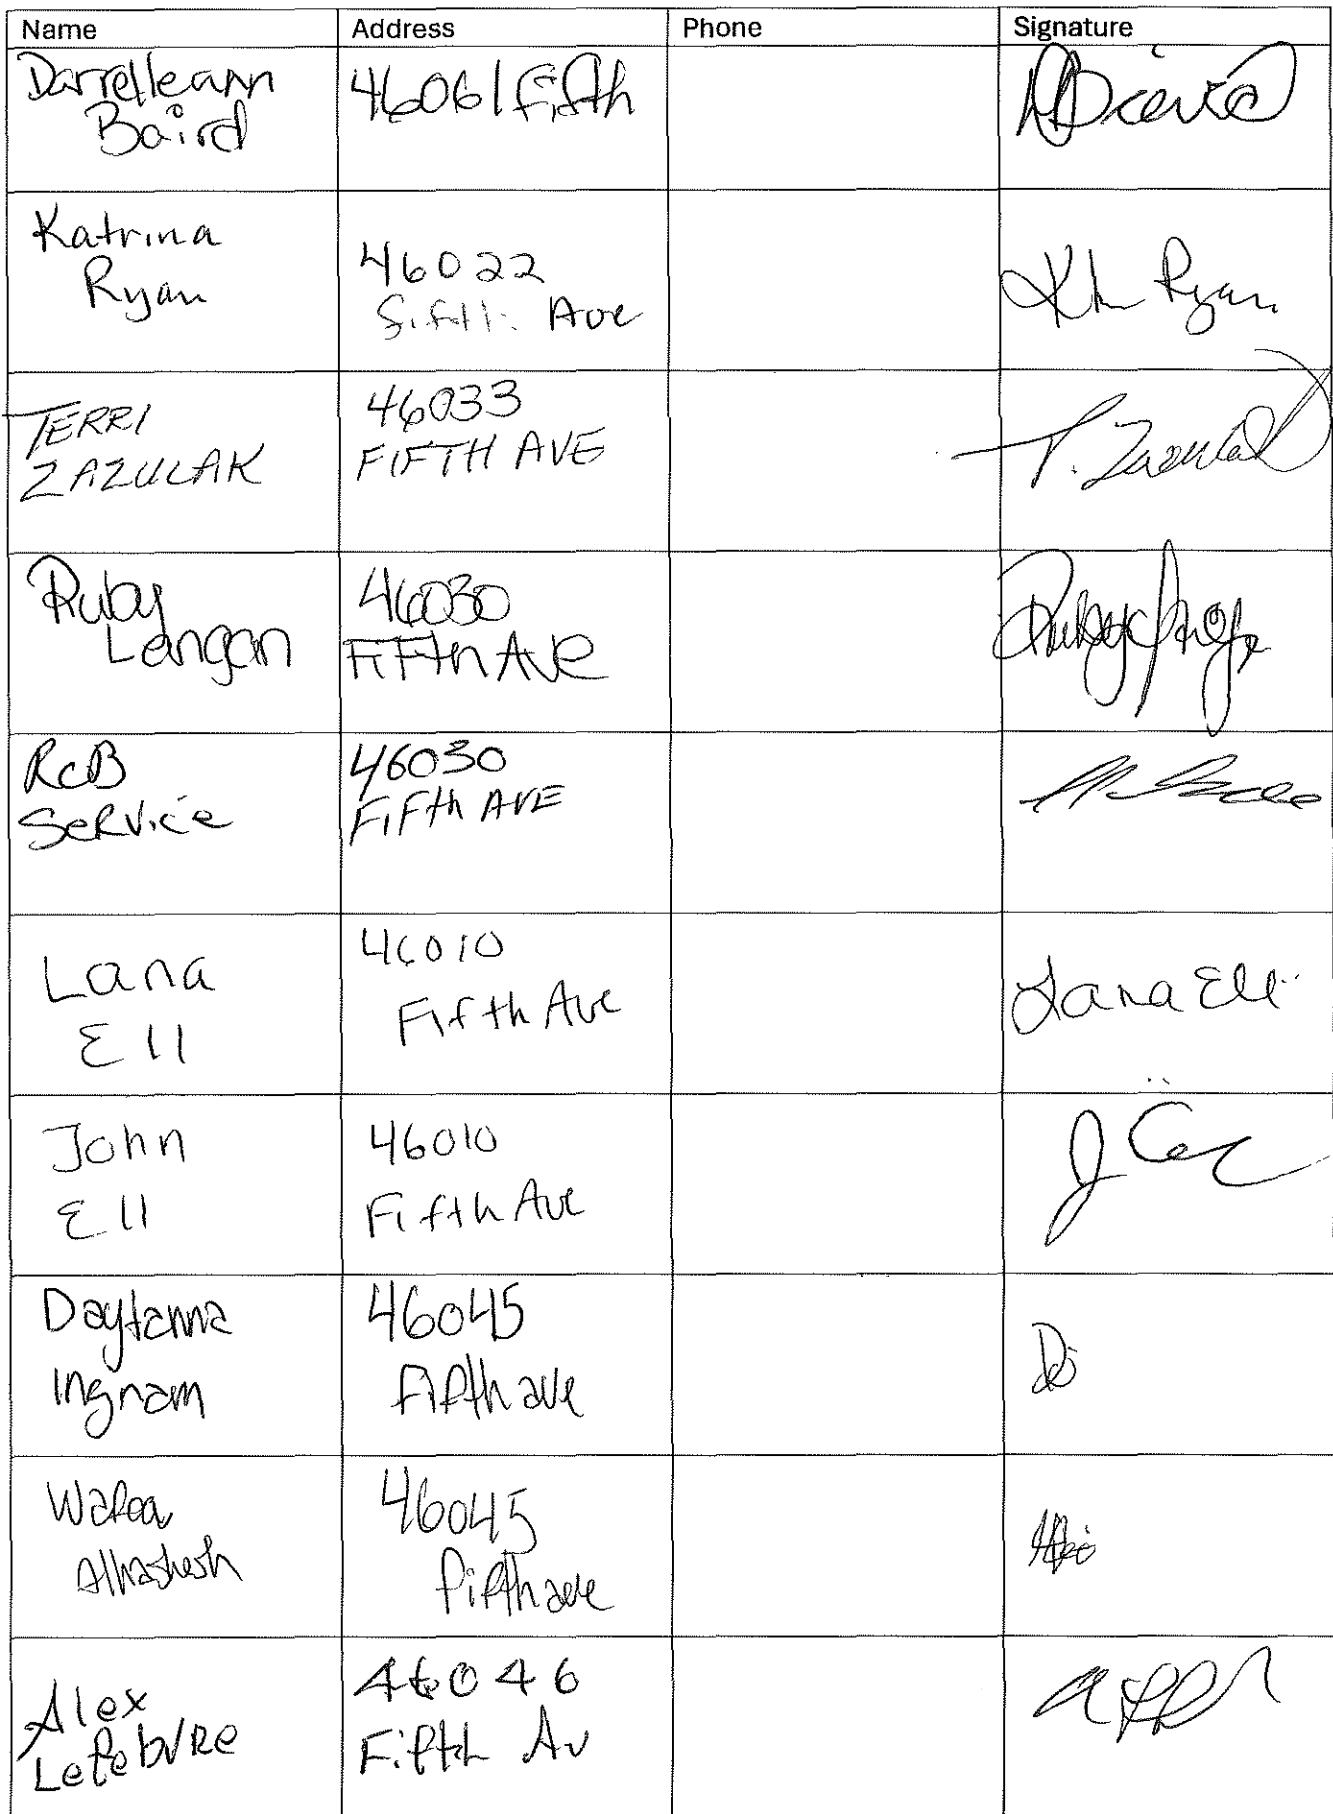 Name Address Phone Signature
Darrelleann
Baird
46061 Fifth
Katrina
Ryan
46022
Fifth Ave
Ryan
TERRI
ZAZULAK
46033
FIFTH AVE
T. Zazulak
Ruby
Langan
46030
FIFTh AVe
RCB
SeRvice
46030
FiFth AVE
Lana
Ell
46010
Fifth Ave
Lana Ell
John
Ell
46010
Fifth Ave
Daytanna
Ingram
46045
Fifth ave
Alhashesh
46045
fifth ave
Alex
LefebvRe
46046
Fifth Av